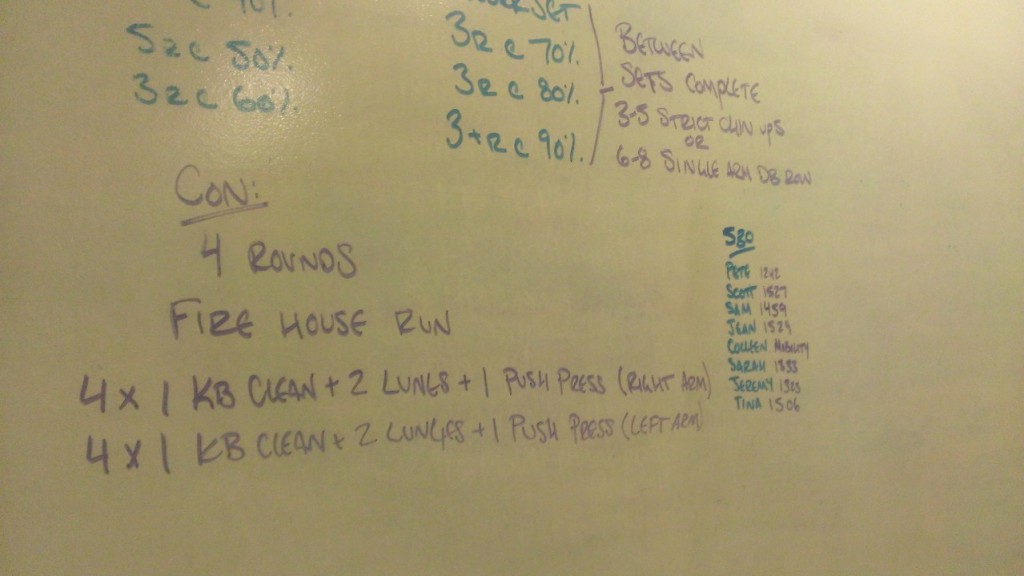 40%.
5R C 50%.
3R C 60%.
SET
3R C 70%.
3R C 80%.
3+R C 90%.
BETWEEN
SETS COMPLETE
3-5 STRICT CHIN UPS
OR
6-8 SINGLE ARM DB ROW
CON:
4 ROUNDS
FIRE HOUSE RUN
4 X 1 KB CLEAN + 2 LUNGES + 1 PUSH PRESS (RIGHT ARM)
4 X 1 KB CLEAN + 2 LUNGES + 1 PUSH PRESS (LEFT ARM)
530
PETE 1242
SCOTT 1527
SAM 1459
JEAN 1529
COLLEEN MOBILITY
SARAH 1535
JEREMY 1323
TINA 1506